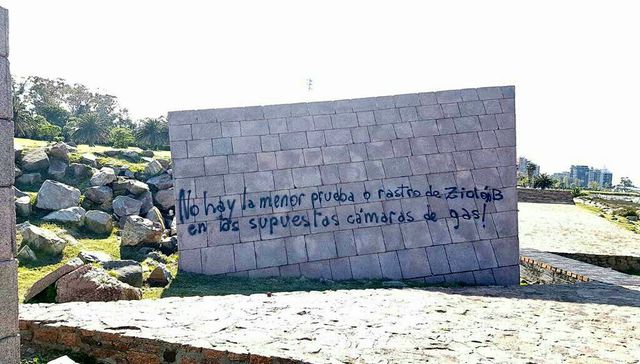 No hay la menor prueba o rastro de Ziclón B
en las supuestas cámaras de gas!